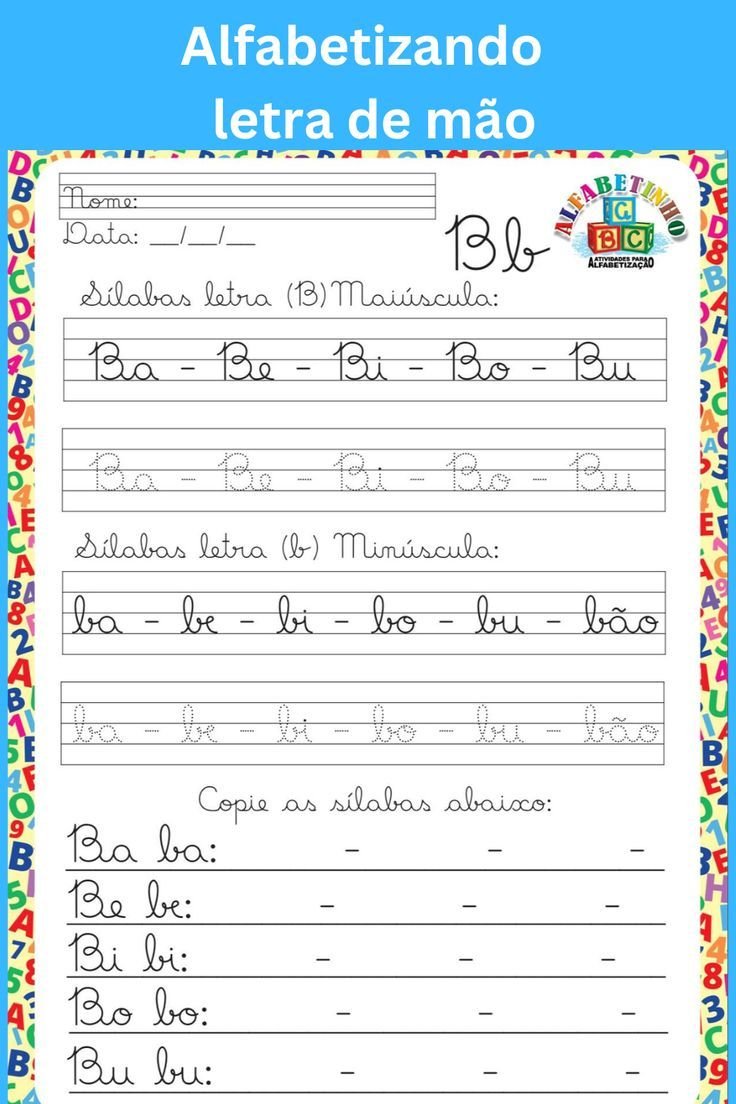 Alfabetizando
letra de mão
Nome:
Data: __/__/__
Bb
ALFABETINHO
G
B C
ATIVIDADES PARA
ALFABETIZAÇÃO
Sílabas letra (B) Maiúscula:
Ba - Be - Bi - Bo - Bu
Ba - Be - Bi - Bo - Bu
Sílabas letra (b) Minúscula:
ba - be - bi - bo - bu - bão
ba - be - bi - bo - bu - bão
Copie as sílabas abaixo:
Ba ba: - - -
Be be: - - -
Bi bi: - - -
Bo bo: - - -
Bu bu: - - -